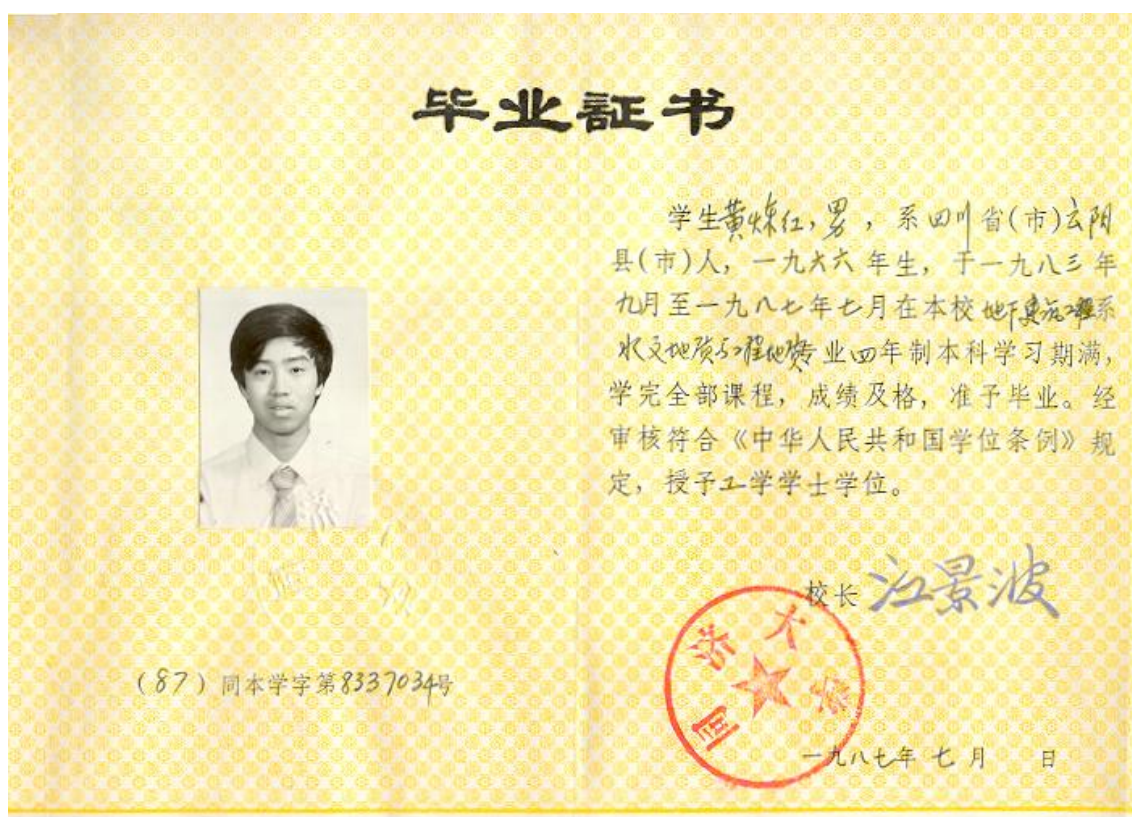 毕业証书
学生黄炼红,男,系四川省(市)云阳
县(市)人,一九六六年生,于一九八三年
九月至一九八七年七月在本校地下建筑工程系
水文地质与工程地质专业四年制本科学习期满,
学完全部课程,成绩及格,准予毕业。经
审核符合《中华人民共和国学位条例》规
定,授予工学学士学位。
校长 江景波
同济大学
(87)同本学字第8337034号
一九八七年七月 日